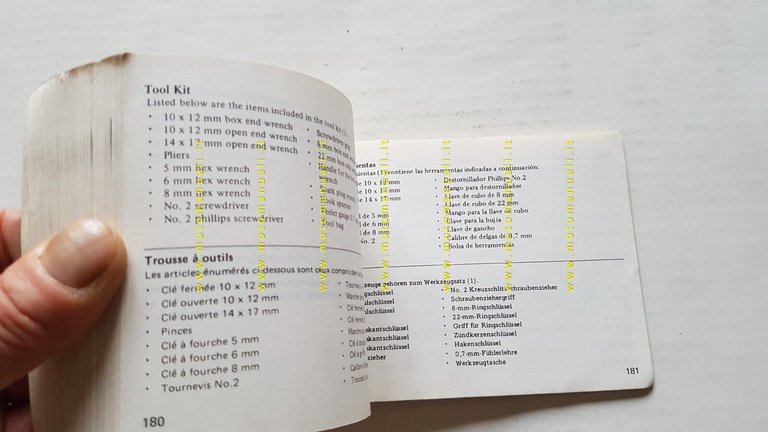 Tool Kit
Listed below are the items included in the tool kit (1).
• 10 x 12 mm box end wrench
• 10 x 12 mm open end wrench
• 14 x 17 mm open end wrench
• Pliers
• 5 mm hex wrench
• 6 mm hex wrench
• 8 mm hex wrench
• No. 2 screwdriver
• No. 2 phillips screwdriver
• Screwdriver
• 22 mm box end
wrench
• Spark plug
• Hook spanner
• Feeler gauge
• Tool bag
Trousse à outils
Les articles énumérés ci-dessous sont ceux compris dans
• Clé fermée 10 x 12 mm
• Clé ouverte 10 x 12 mm
• Clé ouverte 14 x 17 mm
• Pinces
• Clé à fourche 5 mm
• Clé à fourche 6 mm
• Clé à fourche 8 mm
• Tournevis No.2
180
(1) contiene las herramientas indicadas a continuación:
de 10 x 12 mm
de 10 x 12 mm
de 14 x 17 mm
de 5 mm
de 6 mm
de 8 mm
No. 2
• Destornillador Phillips No.2
• Mango para destornillador
• Llave de cubo de 8 mm
• Llave de cubo de 22 mm
• Mango para la llave de cubo
• Llave para la bujía
• Llave de gancho
• Calibre de delgas de 0,7 mm
• Bolsa de herramientas
zeuge gehören zum Werkzeugsatz (1).
gschlüssel
lschlüssel
lschlüssel
skantschlüssel
skantschlüssel
skantschlüssel
zieher
• No. 2 Kreuzschlitzschraubenzieher
• Schraubenziehergriff
• 8-mm-Ringschlüssel
• 22-mm-Ringschlüssel
• Griff für Ringschlüssel
• Zündkerzenschlüssel
• Hakenschlüssel
• 0,7-mm-Fühlerlehre
• Werkzeugtasche
181
www.motomannelli.it
www.motomannelli.it
www.motomannelli.it
www.motomannelli.it
www.motomannelli.it
www.motomannelli.it